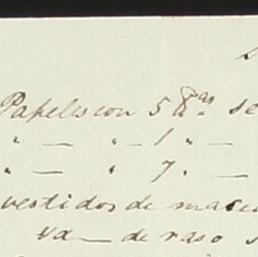 Papeles con 5 @as. se
" — " — 1 " —
" — " 7. —
vestidos de mas
va — de raso s